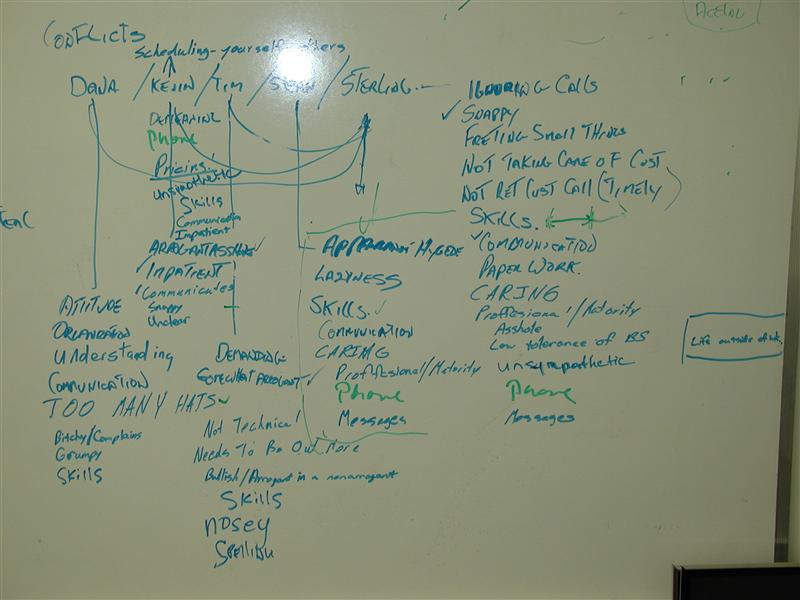 CONFLICTS
Scheduling-yourself others
DANA / KEVIN / TIM / SEAN / STERLING
DEMEANING
Phone
Pricing!
Unsympathetic
Skills
Communication
Impatient
ARROGANT ASSHOLE
IMPATIENT
Communicates
Snappy
Unclear
ATTITUDE
ORGANIZATION
Understanding
COMMUNICATION
TOO MANY HATS
Bitchy/Complains
Grumpy
Skills
DEMANDING
SOMEWHAT ARROGANT
Not Technical
Needs To Be Out More
Bullish/Arrogant in a nonarrogant
Skills
nosey
Spelling
HYGENE
LAZYNESS
SKILLS.
COMMUNICATION
CARING
Proffesional/Maturity
Phone
Messages
IGNORING CALLS
SNAPPY
FRETING SMALL THINGS
NOT TAKING CARE OF CUST
NOT RET CUST CALL (TIMELY)
SKILLS.
COMMUNICATION
PAPER WORK.
CARING
Proffesional/Maturity
Asshole
Low tolerance of BS
unsympathetic
Phone
Messages
Life outside of